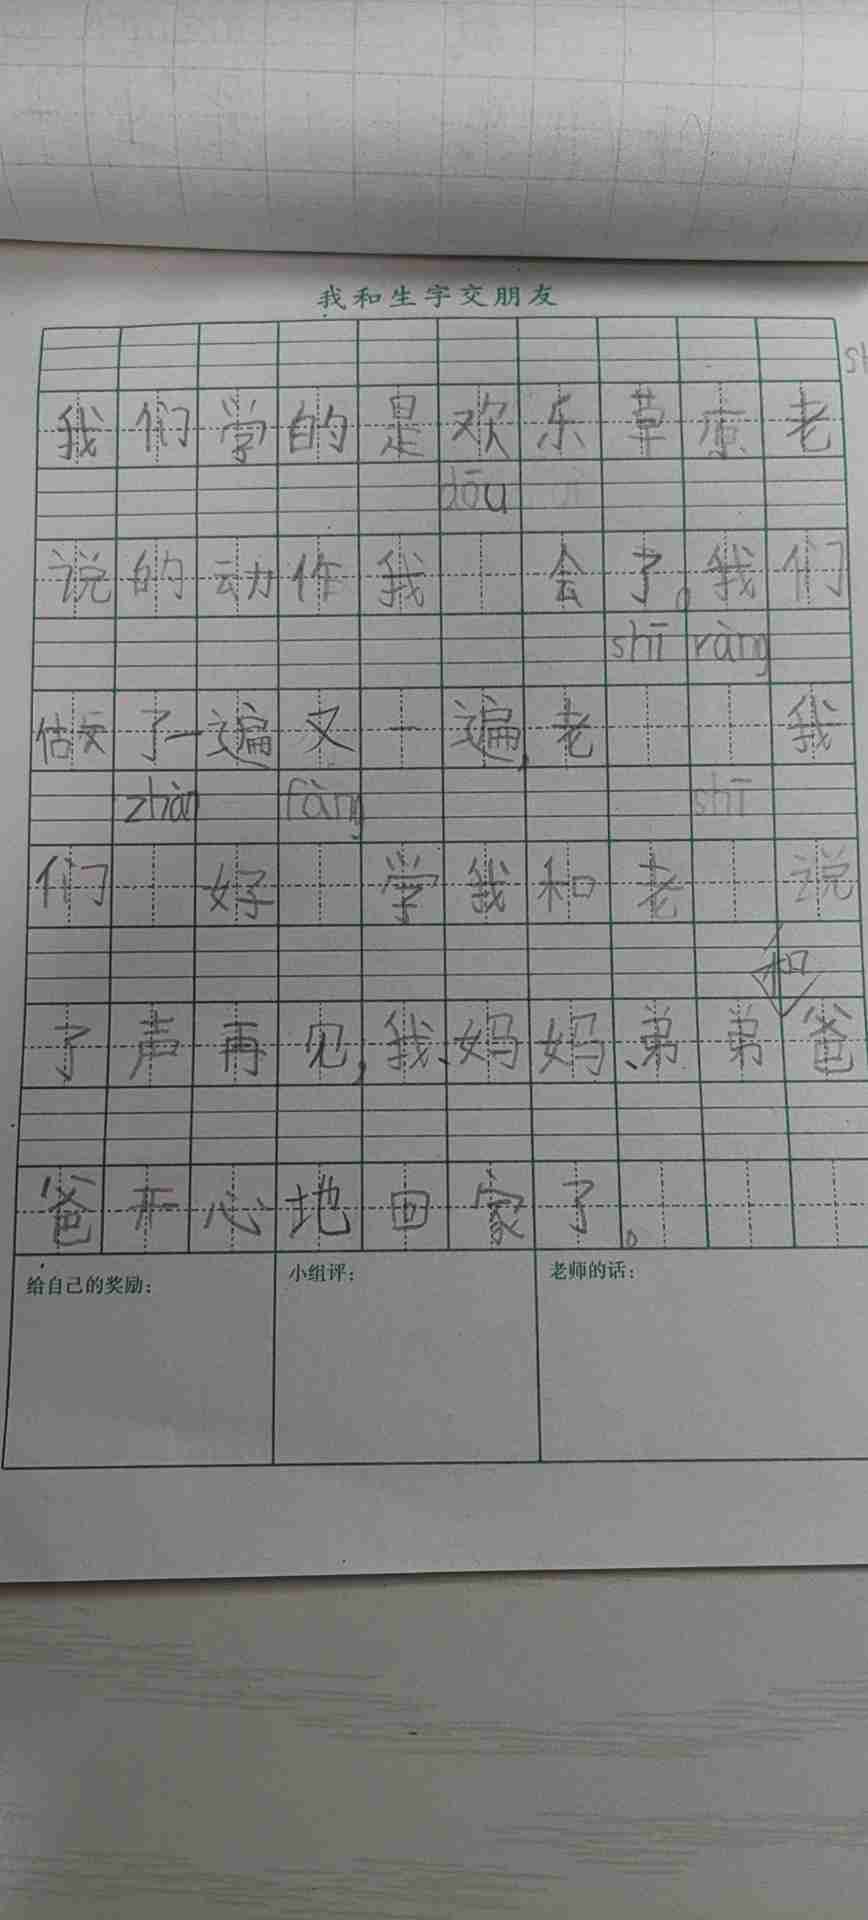 我和生字交朋友
我们学的是欢乐草原老
dōu
说的动作我 会了。我们
shī ràng
做了一遍又一遍,老 我
zhàn fàng shī
们 好 学我和老 说
和
了声再见,我、妈妈、弟弟爸
爸开心地回家了。
给自己的奖励: 小组评: 老师的话: